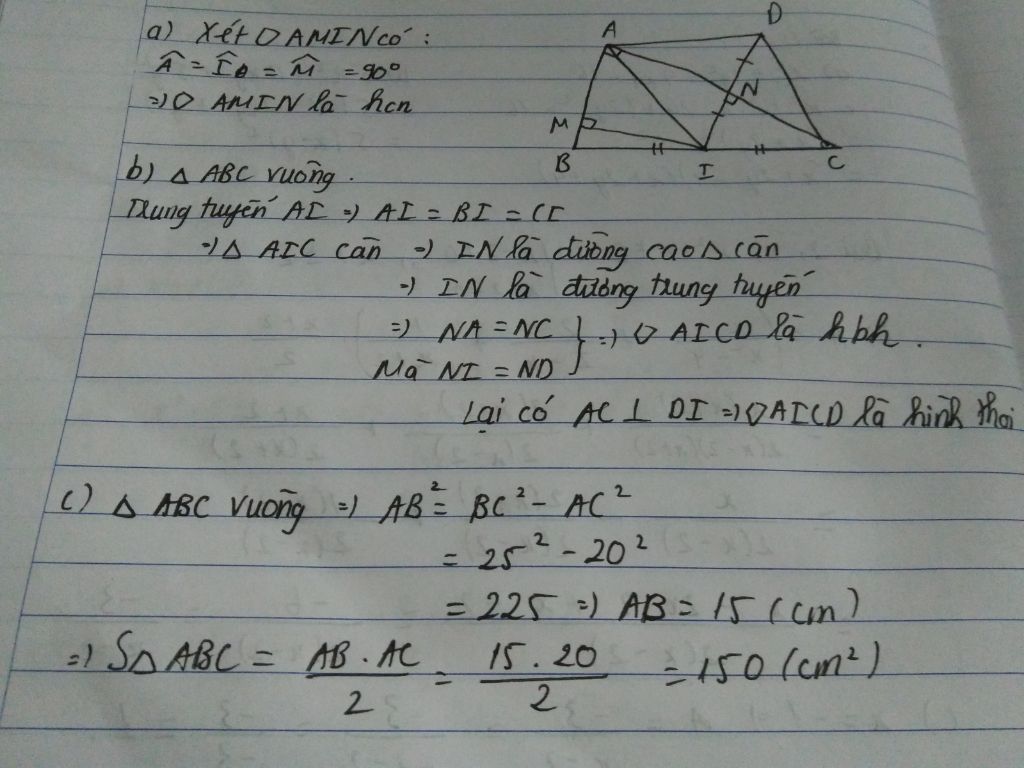 a) Xét ▱ AMIN có :
Â = Î = M̂ = 90°
=> ▱ AMIN là hcn
A
D
N
M
B
I
C
b) △ ABC vuông .
Trung tuyến AI => AI = BI = CI
=> △ AIC cân => IN là đường cao △ cân
=> IN là đường trung tuyến
=> NA = NC } => ▱ AICD là hbh .
Mà NI = ND
Lại có AC ⊥ DI => ▱ AICD là hình thoi
c) △ ABC vuông => AB² = BC² - AC²
= 25² - 20²
= 225 => AB = 15 (cm)
=> S△ ABC = AB . AC / 2 = 15 . 20 / 2 = 150 (cm²)